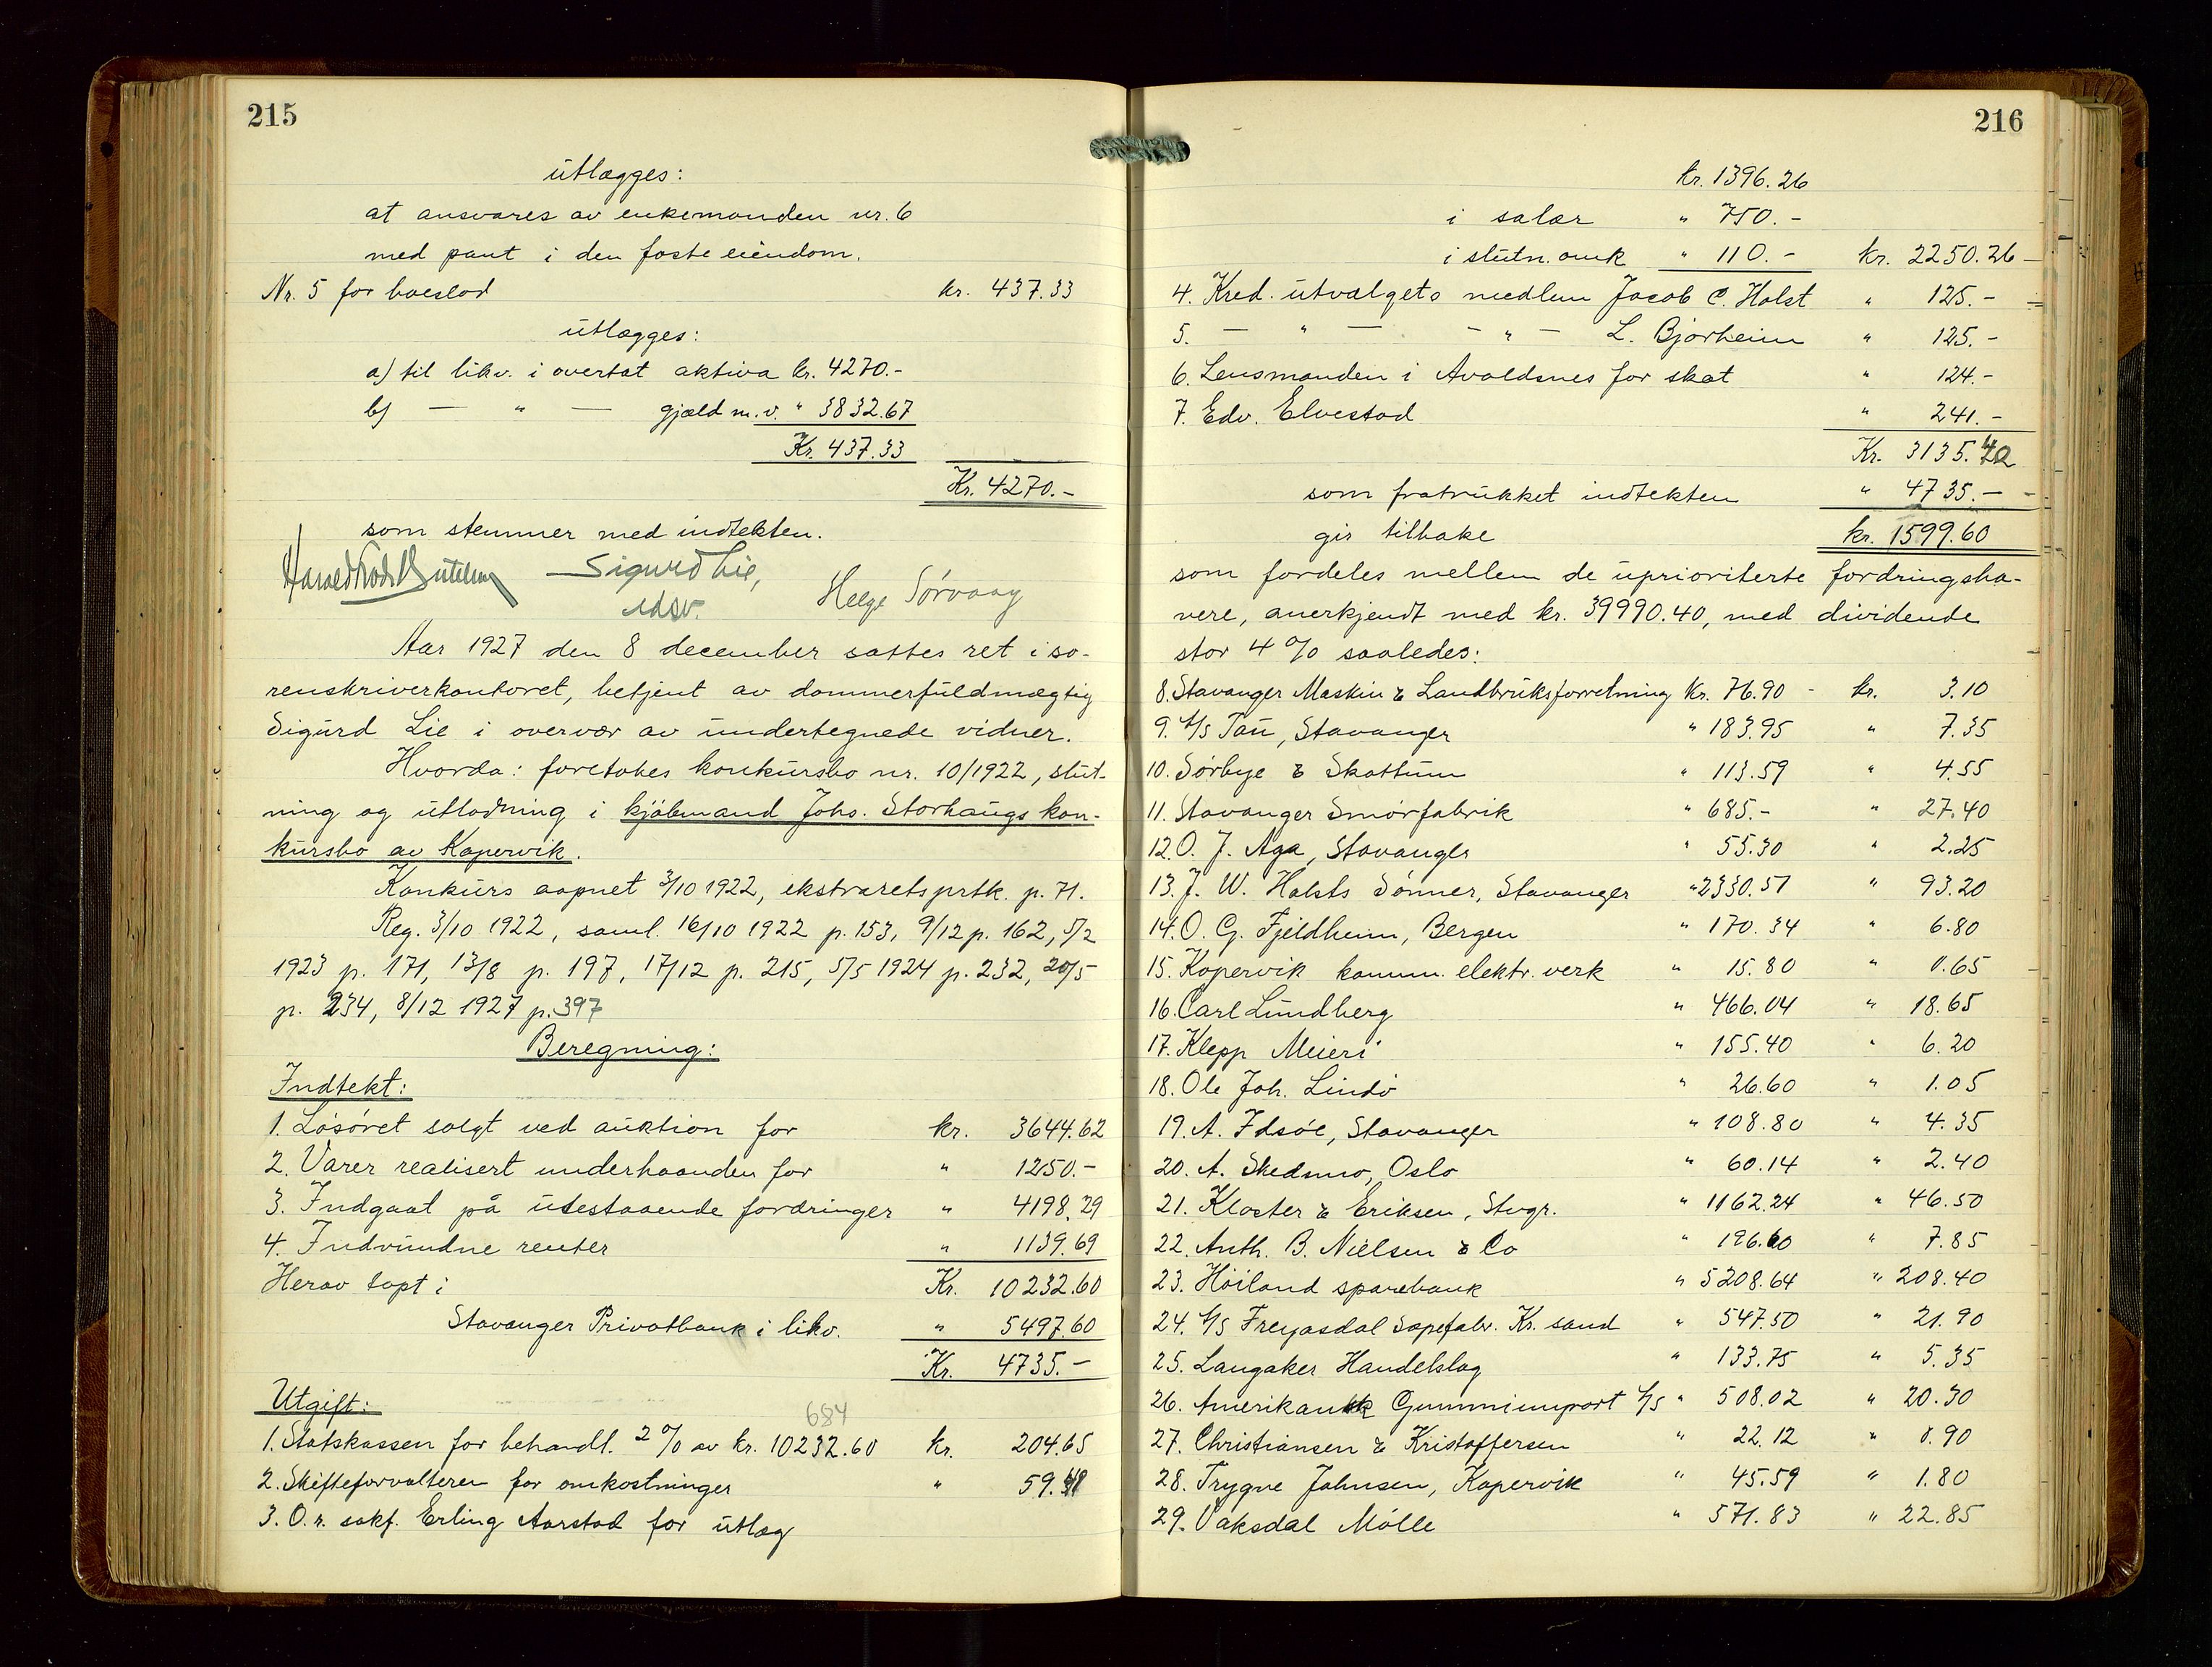 215
utlægges:
at ansvares av enkemanden nr. 6
med pant i den faste eiendom.
Nr. 5 for boeslod kr. 437.33
utlægges:
a) til likv. i overtat aktiva kr. 4270.-
b) — " — gjæld m.v. " 3832.67
Kr. 437.33
Kr. 4270.-
som stemmer med indtekten.
Sigurd Lie,
edsv.
Helge Sørvaag
Aar 1927 den 8 december sattes ret i so-
renskriverkontoret, betjent av dommerfuldmægtig
Sigurd Lie i overvær av undertegnede vidner.
Hvorda: foretokes konkursbo nr. 10/1922, slut-
ning og utlodning i kjøbmand Johs. Storhaugs kon-
kursbo av Kopervik.
Konkurs aapnet 3/10 1922, ekstraretsprtk. p. 71.
Reg. 3/10 1922, saml. 16/10 1922 p. 153, 9/12 p. 162, 5/2
1923 p. 171, 13/8 p. 197, 17/12 p. 215, 5/5 1924 p. 232, 20/5
p. 234, 8/12 1927 p. 397
Beregning:
Indtekt:
1. Løsøret solgt ved auktion for kr. 3644.62
2. Varer realisert underhaanden for " 1250.-
3. Indgaat på utestaaende fordringer " 4198.29
4. Indvundne renter " 1139.69
Herav tapt i Kr. 10232.60
Stavanger Privatbank i likv. " 5497.60
Kr. 4735.-
Utgift:
684
1. Statskassen for behandl. 2% av kr. 10232.60 kr. 204.65
2. Skifteforvalteren for omkostninger " 59.
3. O.r. sakf. Erling Aarstad for utlæg
216
kr. 1396.26
i salær " 750.-
i slutn. omk " 110.- kr. 2250.26
4. Kred. utvalgets medlem Jacob C. Holst " 125.-
5. — " — — " — L. Bjørheim " 125.-
6. Lensmanden i Avaldsnes for skat " 124.-
7. Edv. Elvestad " 241.-
Kr. 3135.40
som fratrukket indtekten " 4735.-
gir tilbake kr. 1599.60
som fordeles mellem de uprioriterte fordringsha-
vere, anerkjendt med kr. 39990.40, med dividende
stor 4% saaledes:
8. Stavanger Maskin & Landbruksforretning Kr. 76.90 - kr. 3.10
9. A/S Tau, Stavanger " 183.95 " 7.35
10. Sørbye & Skattum " 113.59 " 4.55
11. Stavanger Smørfabrik " 685.- " 27.40
12. O. J. Aga, Stavanger " 55.30 " 2.25
13. J. W. Holsts Sønner, Stavanger " 2330.57 " 93.20
14. O. G. Fjeldheim, Bergen " 170.34 " 6.80
15. Kopervik komm. elektr. verk " 15.80 " 0.65
16. Carl Lundberg " 466.04 " 18.65
17. Klepp Meieri " 155.40 " 6.20
18. Ole Joh. Lindø " 26.60 " 1.05
19. A. Idsøe, Stavanger " 108.80 " 4.35
20. A. Skedsmo, Oslo " 60.14 " 2.40
21. Kloster & Eriksen, Stvgr. " 1162.24 " 46.50
22. Anth. B. Nielsen & Co " 196.60 " 7.85
23. Høiland sparebank " 5208.64 " 208.40
24. A/S Freyasdal Sæpefabr. Kr. sand " 547.50 " 21.90
25. Langaker Handelslag " 133.75 " 5.35
26. Amerikansk Gummiimport A/S " 508.02 " 20.30
27. Christiansen & Kristoffersen " 22.12 " 0.90
28. Trygve Johnsen, Kopervik " 45.59 " 1.80
29. Vaksdal Mølle " 571.83 " 22.85